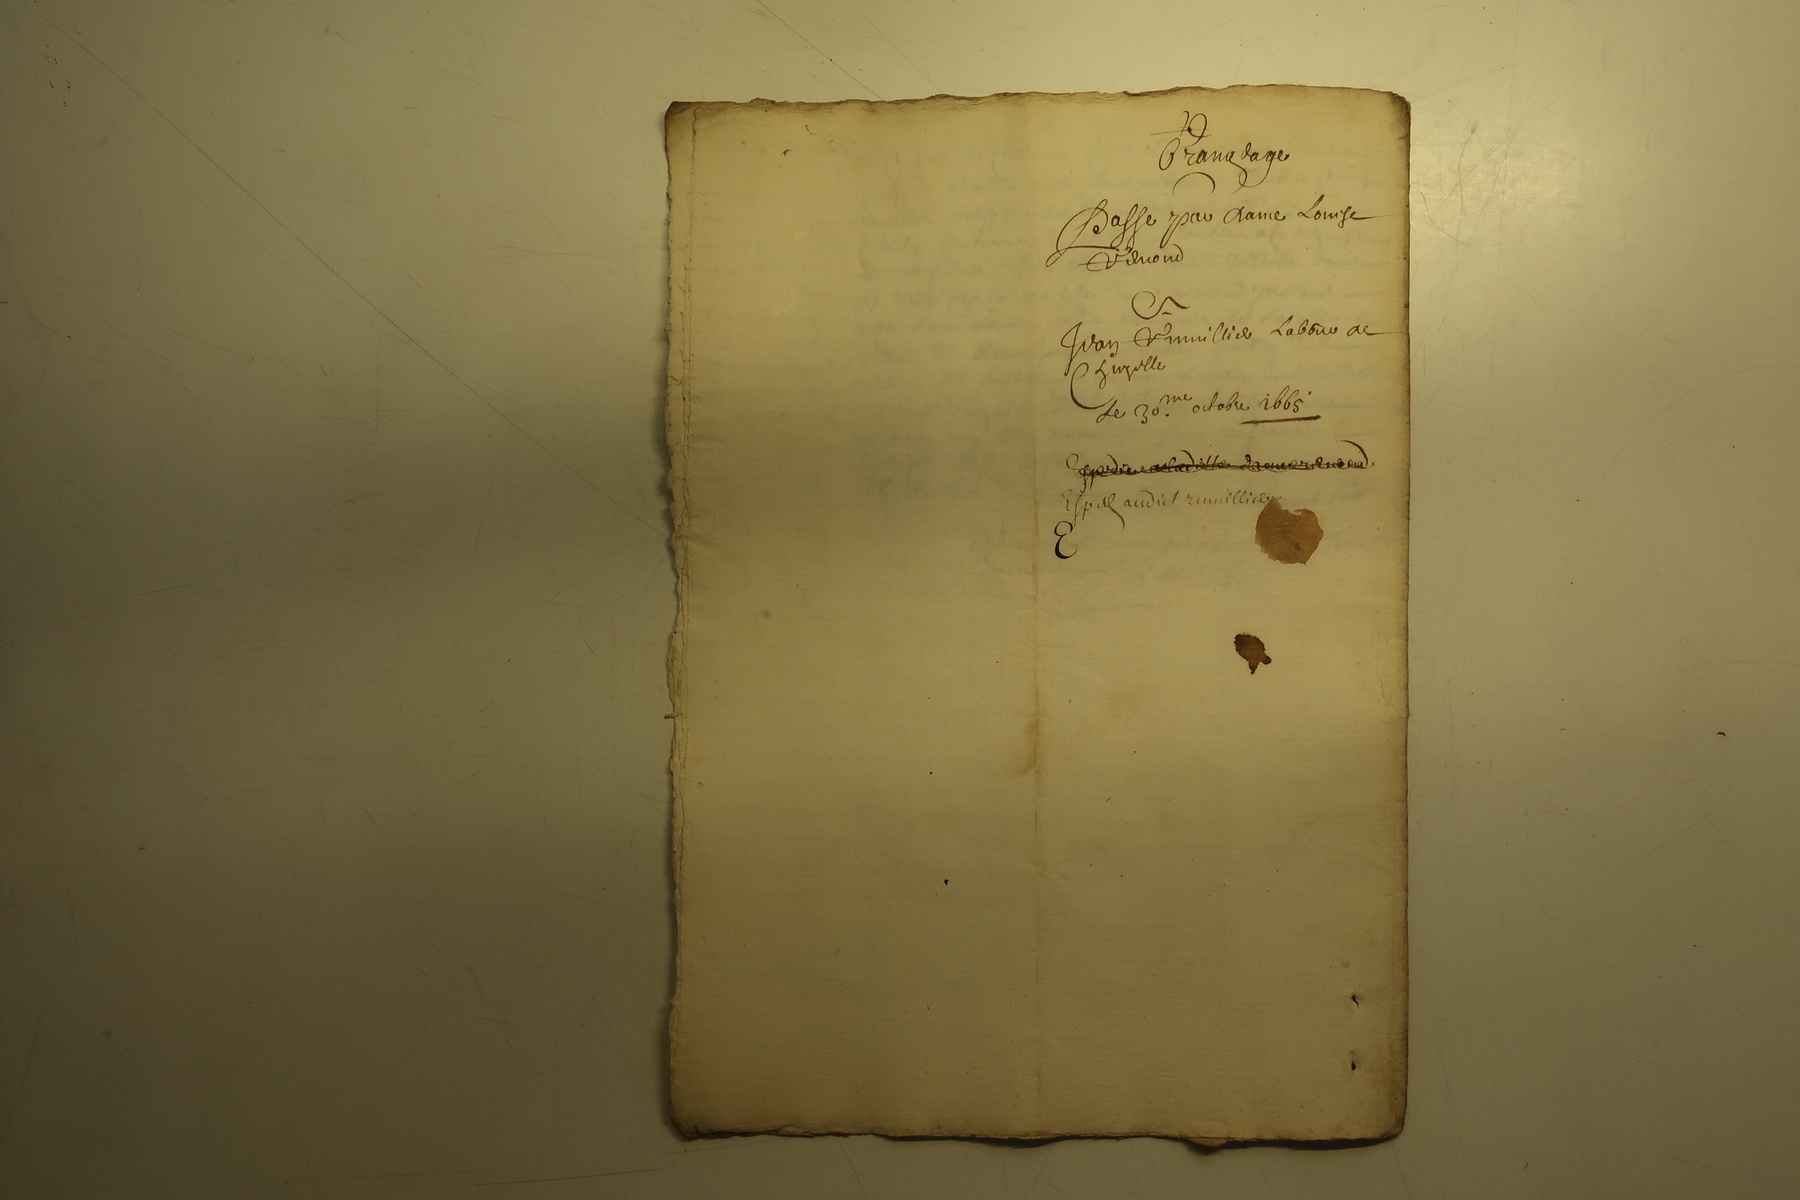 Grangeage
Passe par dame Louise
Vernond
Et
Jean Vrmillier Labour de
Chizelle
Le 30.me octobre 1665
Expedie a laditte
Exped audict rumillier
E